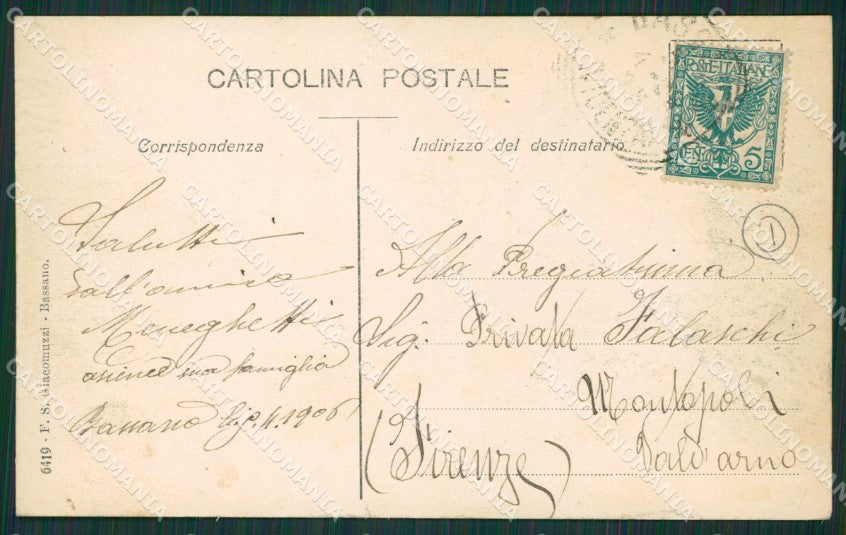 CARTOLINA POSTALE
Corrispondenza
Indirizzo del destinatario
POSTE ITALIANE
CENT. 5
1
Saluti
dall'amica
Meneghetti
assieme sua famiglia
Bassano 4. 1906
Alla Pregiatissima
Sig. Privata Falaschi
Montopoli
Valdarno
(Firenze)
6419 - F. S. Giacomuzzi - Bassano.
CARTOLINOMANIA